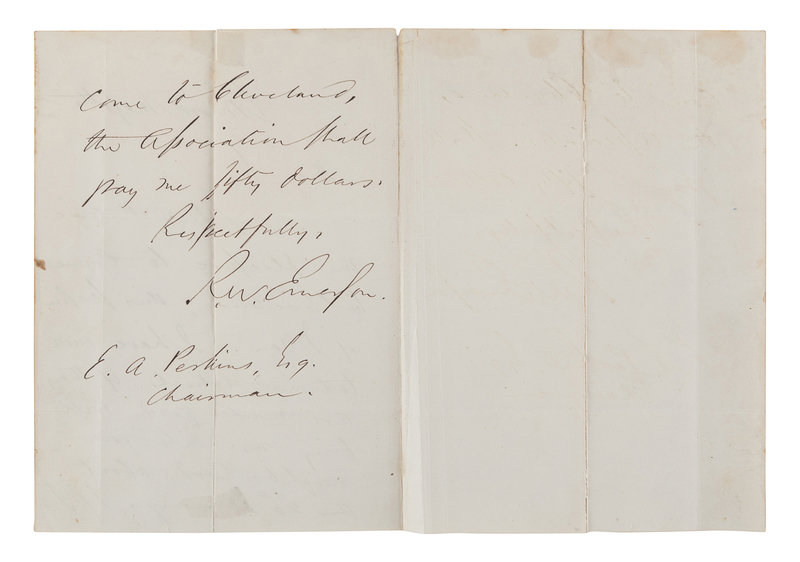 come to Cleveland,
the Association shall
pay me fifty dollars.
Respectfully,
R. W. Emerson.
E. A. Perkins, Esq.
Chairman.